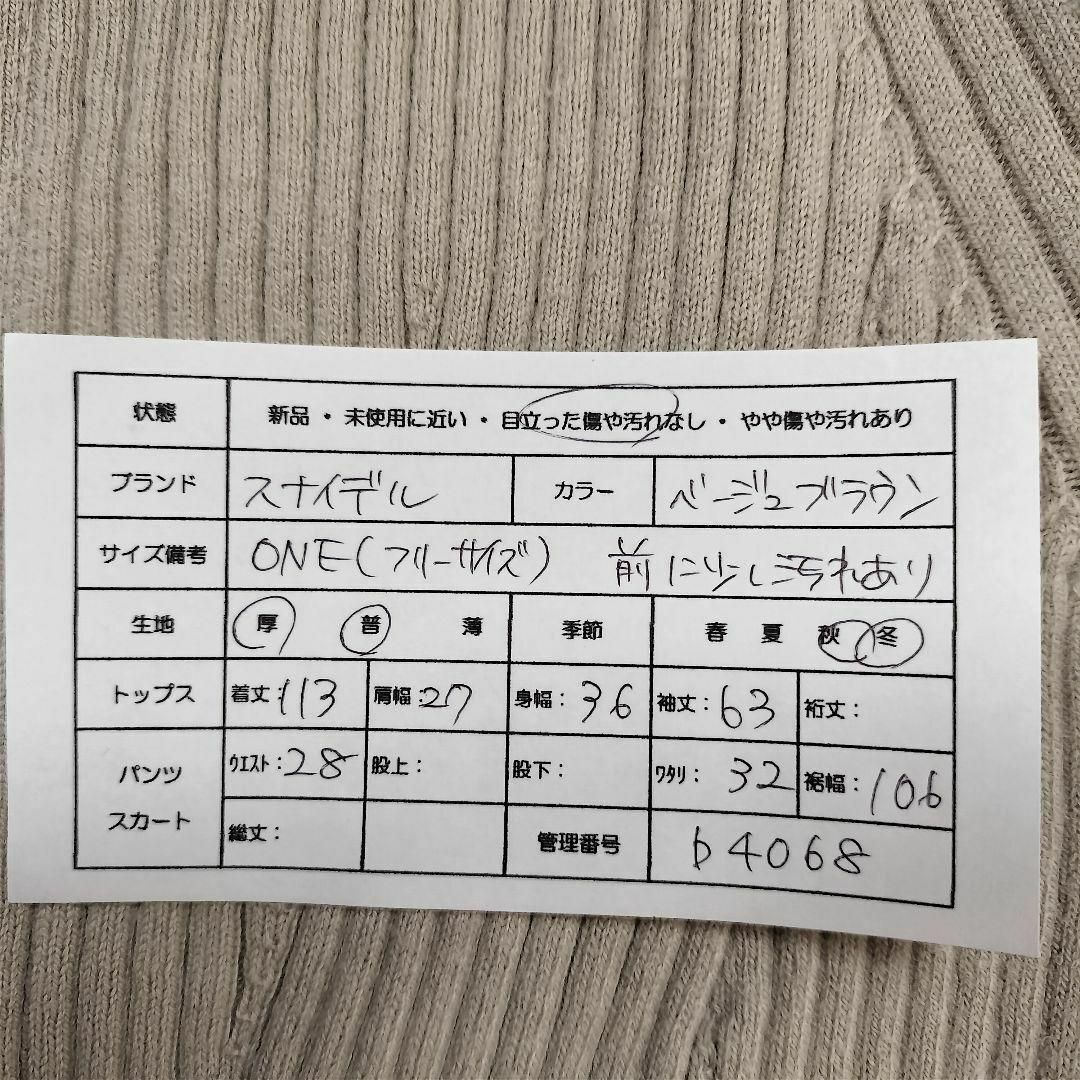 状態 新品 ・ 未使用に近い ・ 目立った傷や汚れなし ・ やや傷や汚れあり
ブランド スナイデル カラー ベージュブラウン
サイズ備考 ONE(フリーサイズ) 前に少し汚れあり
生地 厚 普 薄 季節 春 夏 秋 冬
トップス 着丈:113 肩幅:27 身幅:36 袖丈:63 裄丈:
パンツ スカート ウエスト:28 股上: 股下: ワタリ:32 裾幅:106
総丈: 管理番号 b4068